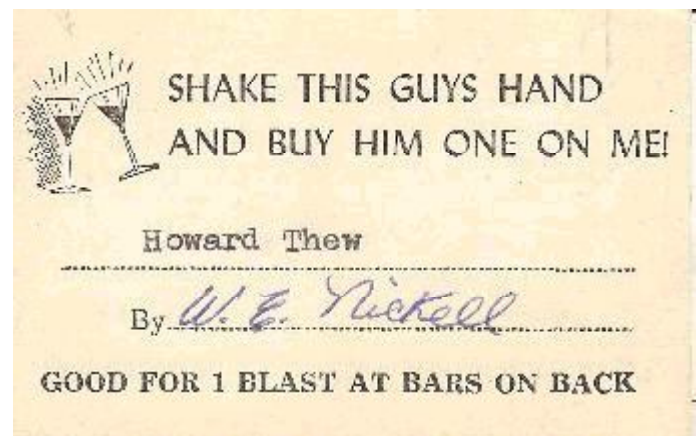 SHAKE THIS GUYS HAND
AND BUY HIM ONE ON ME!
Howard Thew
By W. E. Nickell
GOOD FOR 1 BLAST AT BARS ON BACK